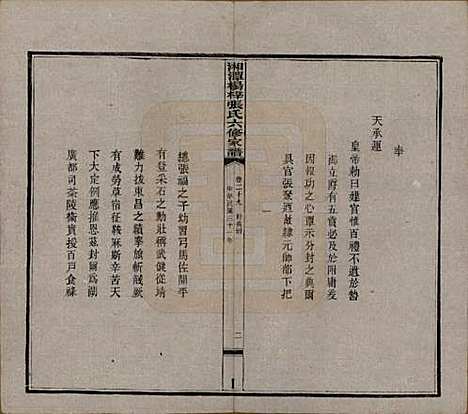 奉
天承運
皇帝勅曰建官惟百禮不遺於
衛立府有五賞必及於附庸爰
因報功之心覃示分封之典爾
具官張聚酒故隸元帥都下把
湘潭楊梓張氏六修家譜
卷二十九
中華民國三十一年
二
總張福之子幼習弓馬佐開平
有登采石之勳壯稱武健從靖
難力拔東昌之績搴旗斬馘厥
有成勞草宿征鞍麻斯辛苦天
下大定例應推恩茲封爾爲湖
廣都司茶陵衛實授百戶食祿